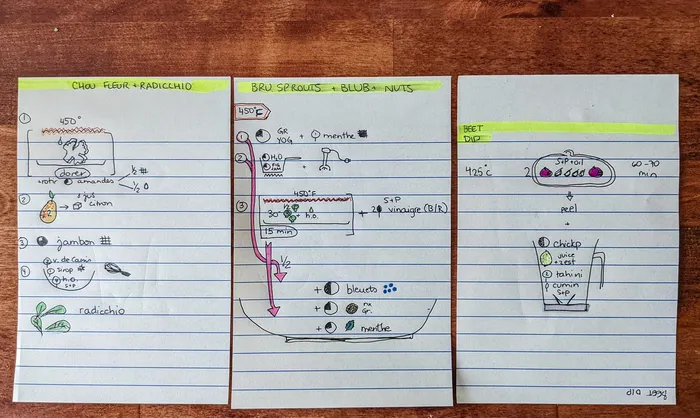 CHOU FLEUR + RADICCHIO
1
450°
dorer
+rotir amandes
1/2
1/2
2
2
jus
citron
3
jambon
4
v. de Camis
sirop
h.o.
S+P
radicchio
BRU SPROUTS + BLUB + NUTS
450°F
1
GR
YOG + menthe
2
H2O
+
3
450°F
30
h.o.
15 min
S+P
+ 2 vinaigre (B/R)
1/2
+ bleuets
+ nu
Gr.
+ menthe
BEET
DIP
425°C
2
S+P+oil
60-70
min
peel
+
chickp
+juice
+zest
tahini
cumin
S+P
BEET DIP